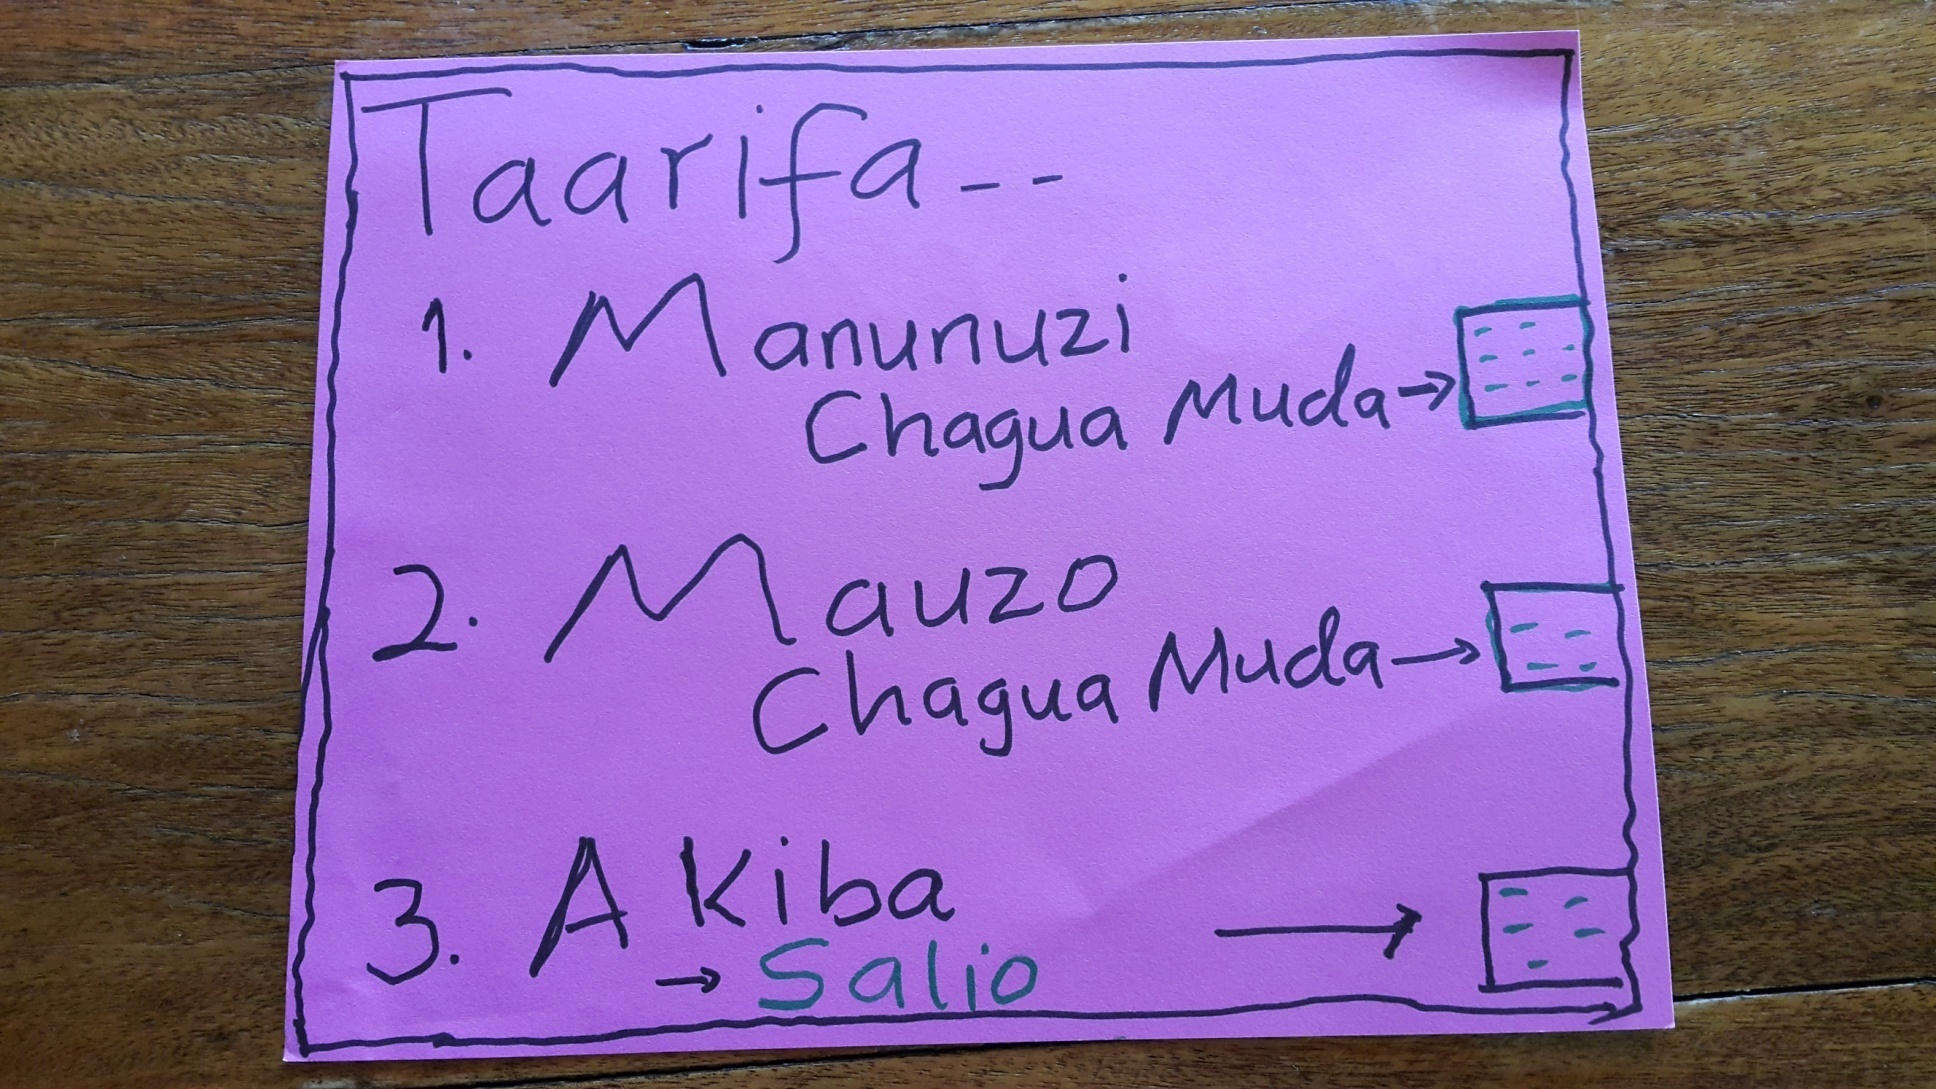 Taarifa--
1. Manunuzi
Chagua Muda→
2. Mauzo
Chagua Muda→
3. Akiba →
→ Salio